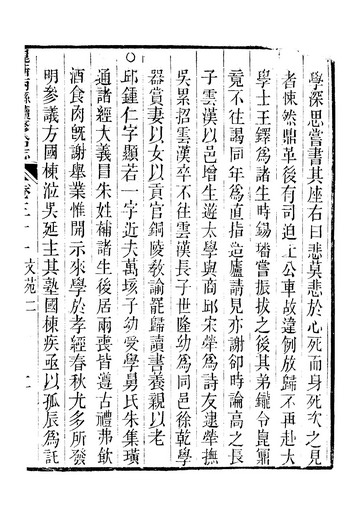 學深思嘗書其座右曰悲莫悲於心死而身死次之見
者悚然鼎革後有司迫上公車故違例放歸不再赴大
學士王鐸爲諸生時錫璠嘗振拔之後其弟鑨令崑
竟不往謁同年爲直指造廬請見亦謝卻時論高之長
子雲漢以邑增生遊太學與商邱宋犖爲詩友逮犖撫
吳累招雲漢卒不往雲漢長子世隆幼爲同邑徐乾學
器賞妻以女以貢官銅陵敎諭罷歸讀書養親以老
〇
邱鍾仁字顯若一字近夫萬垓子幼受學舅氏朱集璜
通諸經大義冒朱姓補諸生後居兩喪皆遵古禮弗飲
酒食肉旣謝舉業惟開示來學於孝經春秋尤多所發
明參議方國棟涖吳延主其塾國棟疾亟以孤辰爲託
文苑二